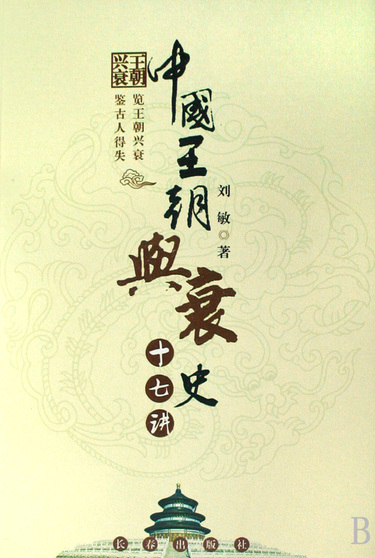 王朝
兴衰
览王朝兴衰
鉴古人得失
中國王朝興衰史
十七讲
刘敏◎著
长春出版社
B